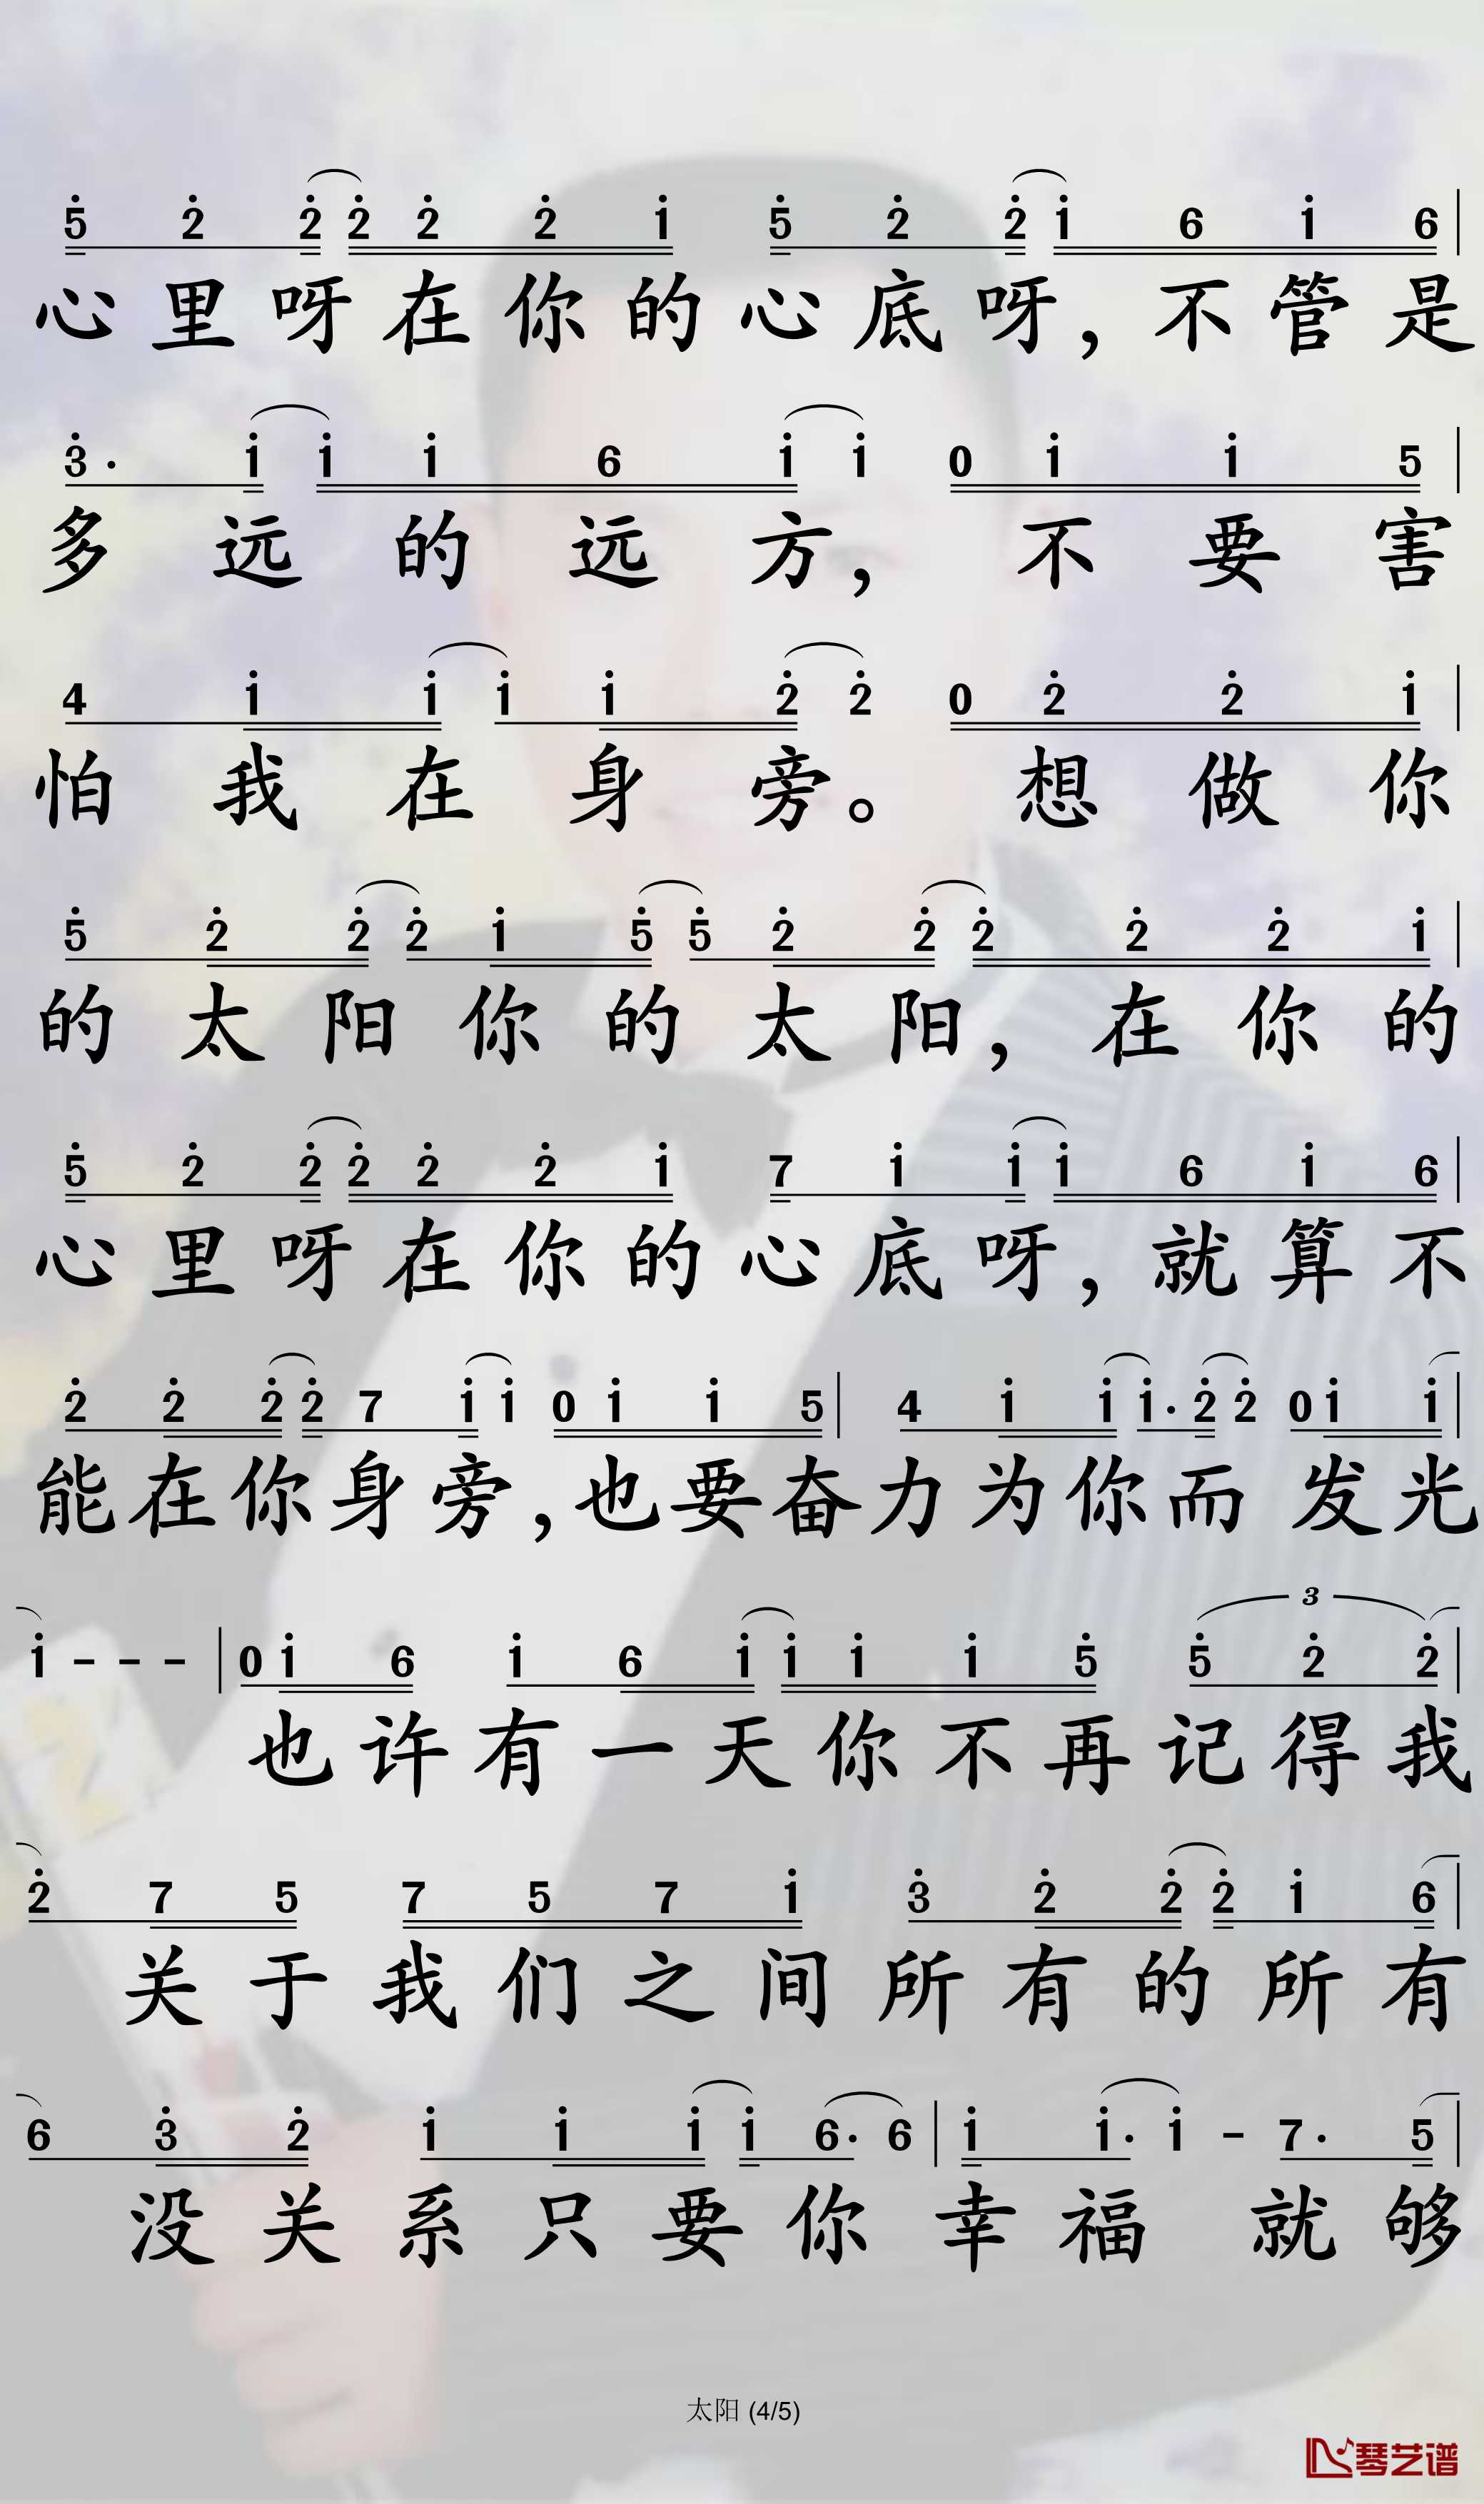 5 2 2 2 2 2 1 5 2 2 1 6 1 6
心里呀在你的心底呀，不管是
3· 1 1 1 6 1 1 0 1 1 5
多远的远方，不要害
4 1 1 1 1 2 2 0 2 2 1
怕我在身旁。想做你
5 2 2 2 1 5 5 2 2 2 2 2 1
的太阳你的太阳，在你的
5 2 2 2 2 2 1 7 1 1 1 6 1 6
心里呀在你的心底呀，就算不
2 2 2 2 7 1 1 0 1 1 5 | 4 1 1 1· 2 2 0 1 1
能在你身旁，也要奋力为你而发光
3
1 - - - | 0 1 6 1 6 1 1 1 1 5 5 2 2
也许有一天你不再记得我
2 7 5 7 5 7 1 3 2 2 2 1 6
关于我们之间所有的所有
6 3 2 1 1 1 1 6· 6 | 1 1· 1 - 7· 5
没关系只要你幸福就够
太阳 (4/5)
琴艺谱